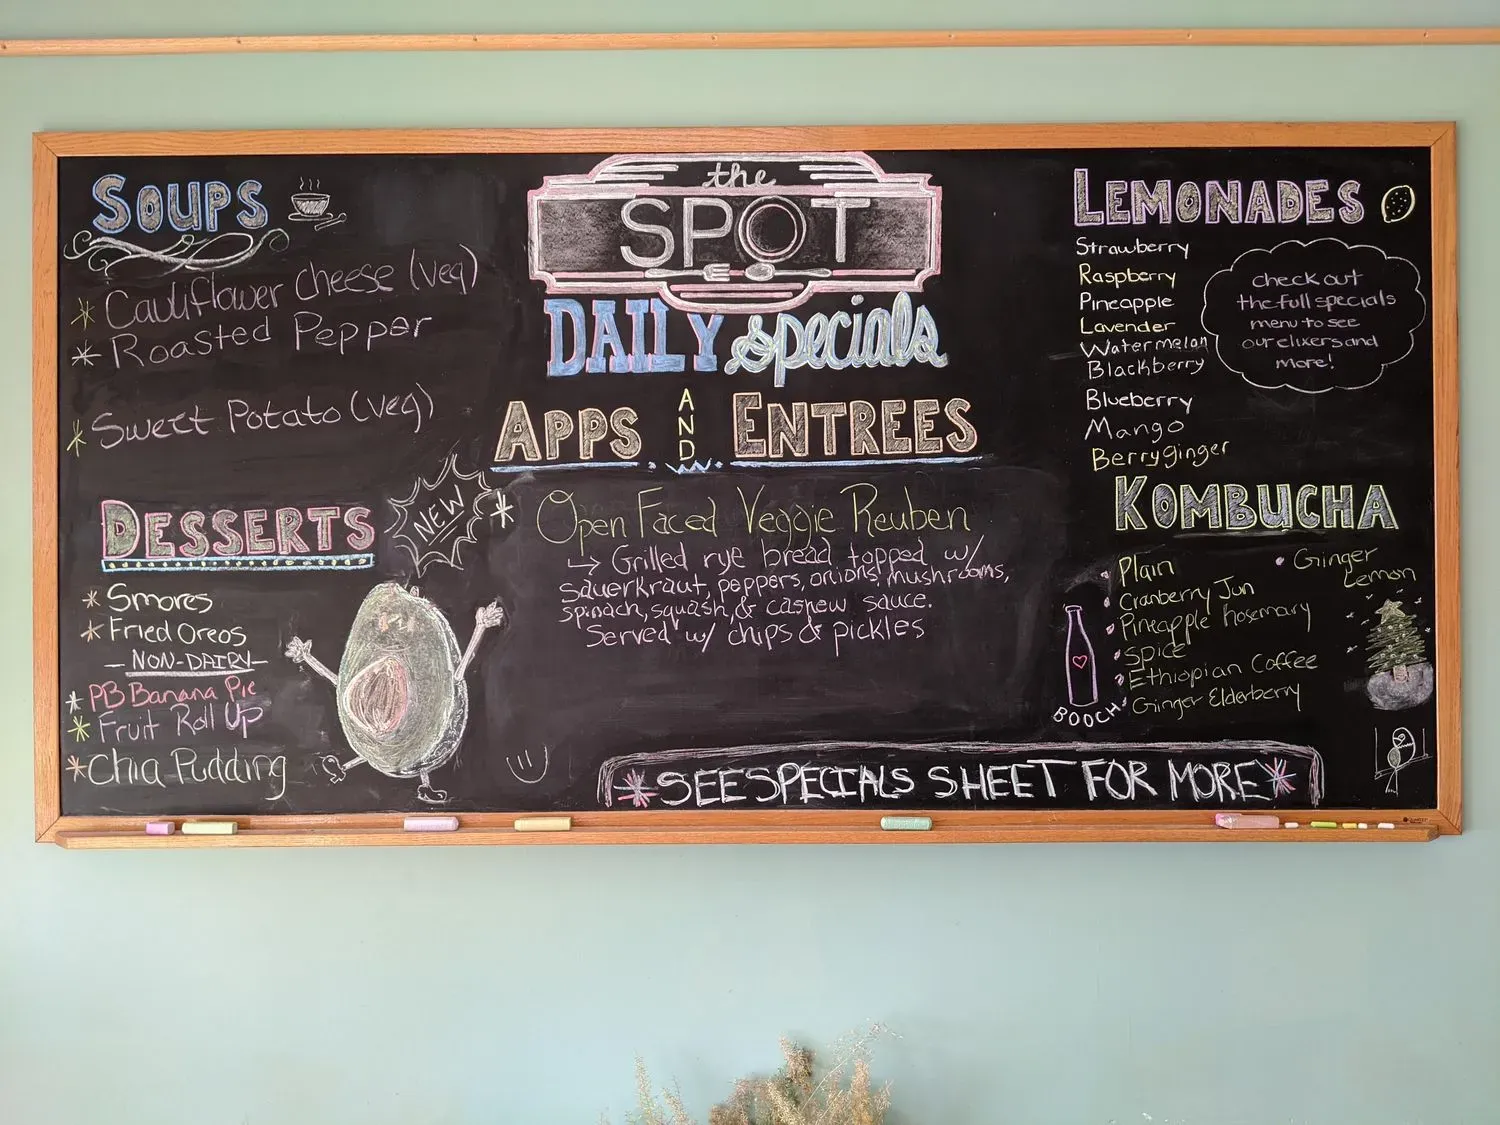 the
SPOT
DAILY specials
SOUPS
Cauliflower cheese (veg)
Roasted Pepper
Sweet Potato (veg)
DESSERTS
Smores
Fried Oreos
- NON-DAIRY -
PB Banana Pie
Fruit Roll Up
Chia Pudding
APPS AND ENTREES
NEW
Open Faced Veggie Reuben
→ Grilled rye bread topped w/
sauerkraut, peppers, onions, mushrooms,
spinach, squash, & cashew sauce.
Served w/ chips & pickles
LEMONADES
Strawberry
Raspberry
Pineapple
Lavender
Watermelon
Blackberry
Blueberry
Mango
Berryginger
check out
the full specials
menu to see
our elixers and
more!
KOMBUCHA
Plain
Cranberry Jun
Pineapple Rosemary
Spice
Ethiopian Coffee
Ginger Elderberry
Ginger
Lemon
BOOCH
*SEE SPECIALS SHEET FOR MORE*